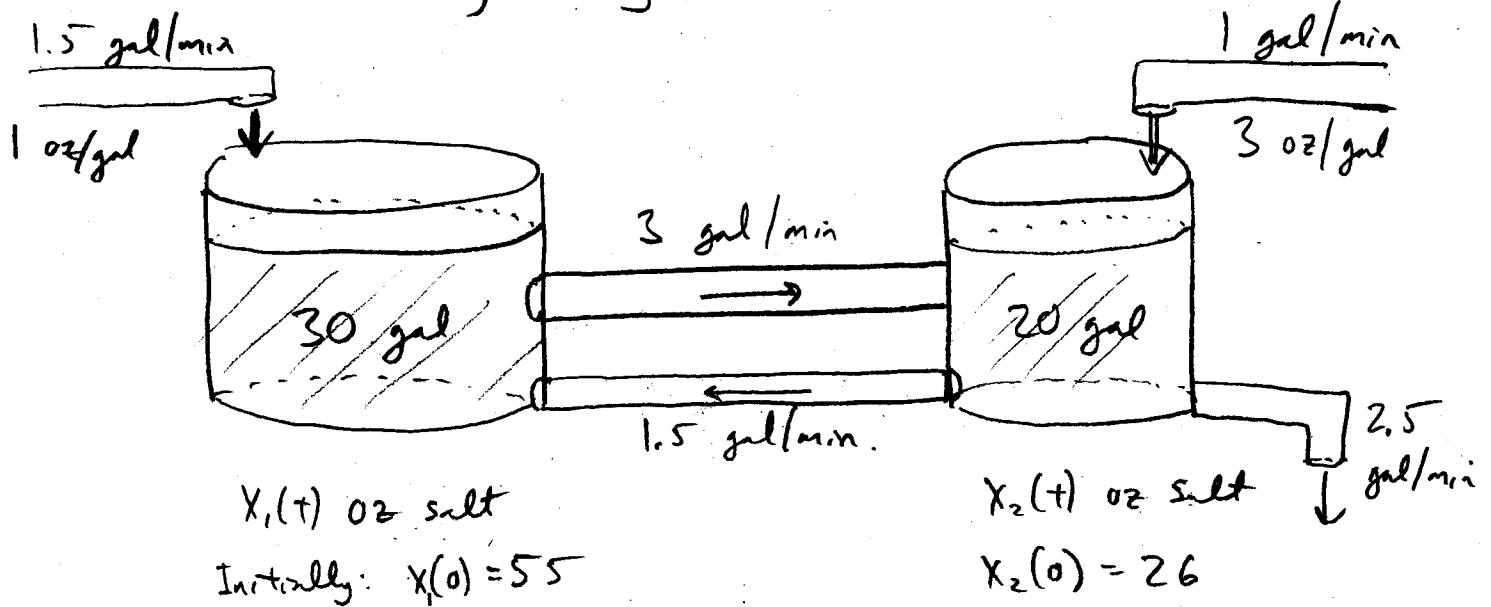 1.5 gal/min
1 oz/gal
1 gal/min
3 oz/gal
3 gal/min
30 gal
20 gal
1.5 gal/min.
2.5
gal/min
X₁(t) oz salt
Initially: X₁(0) = 55
X₂(t) oz salt
X₂(0) = 26